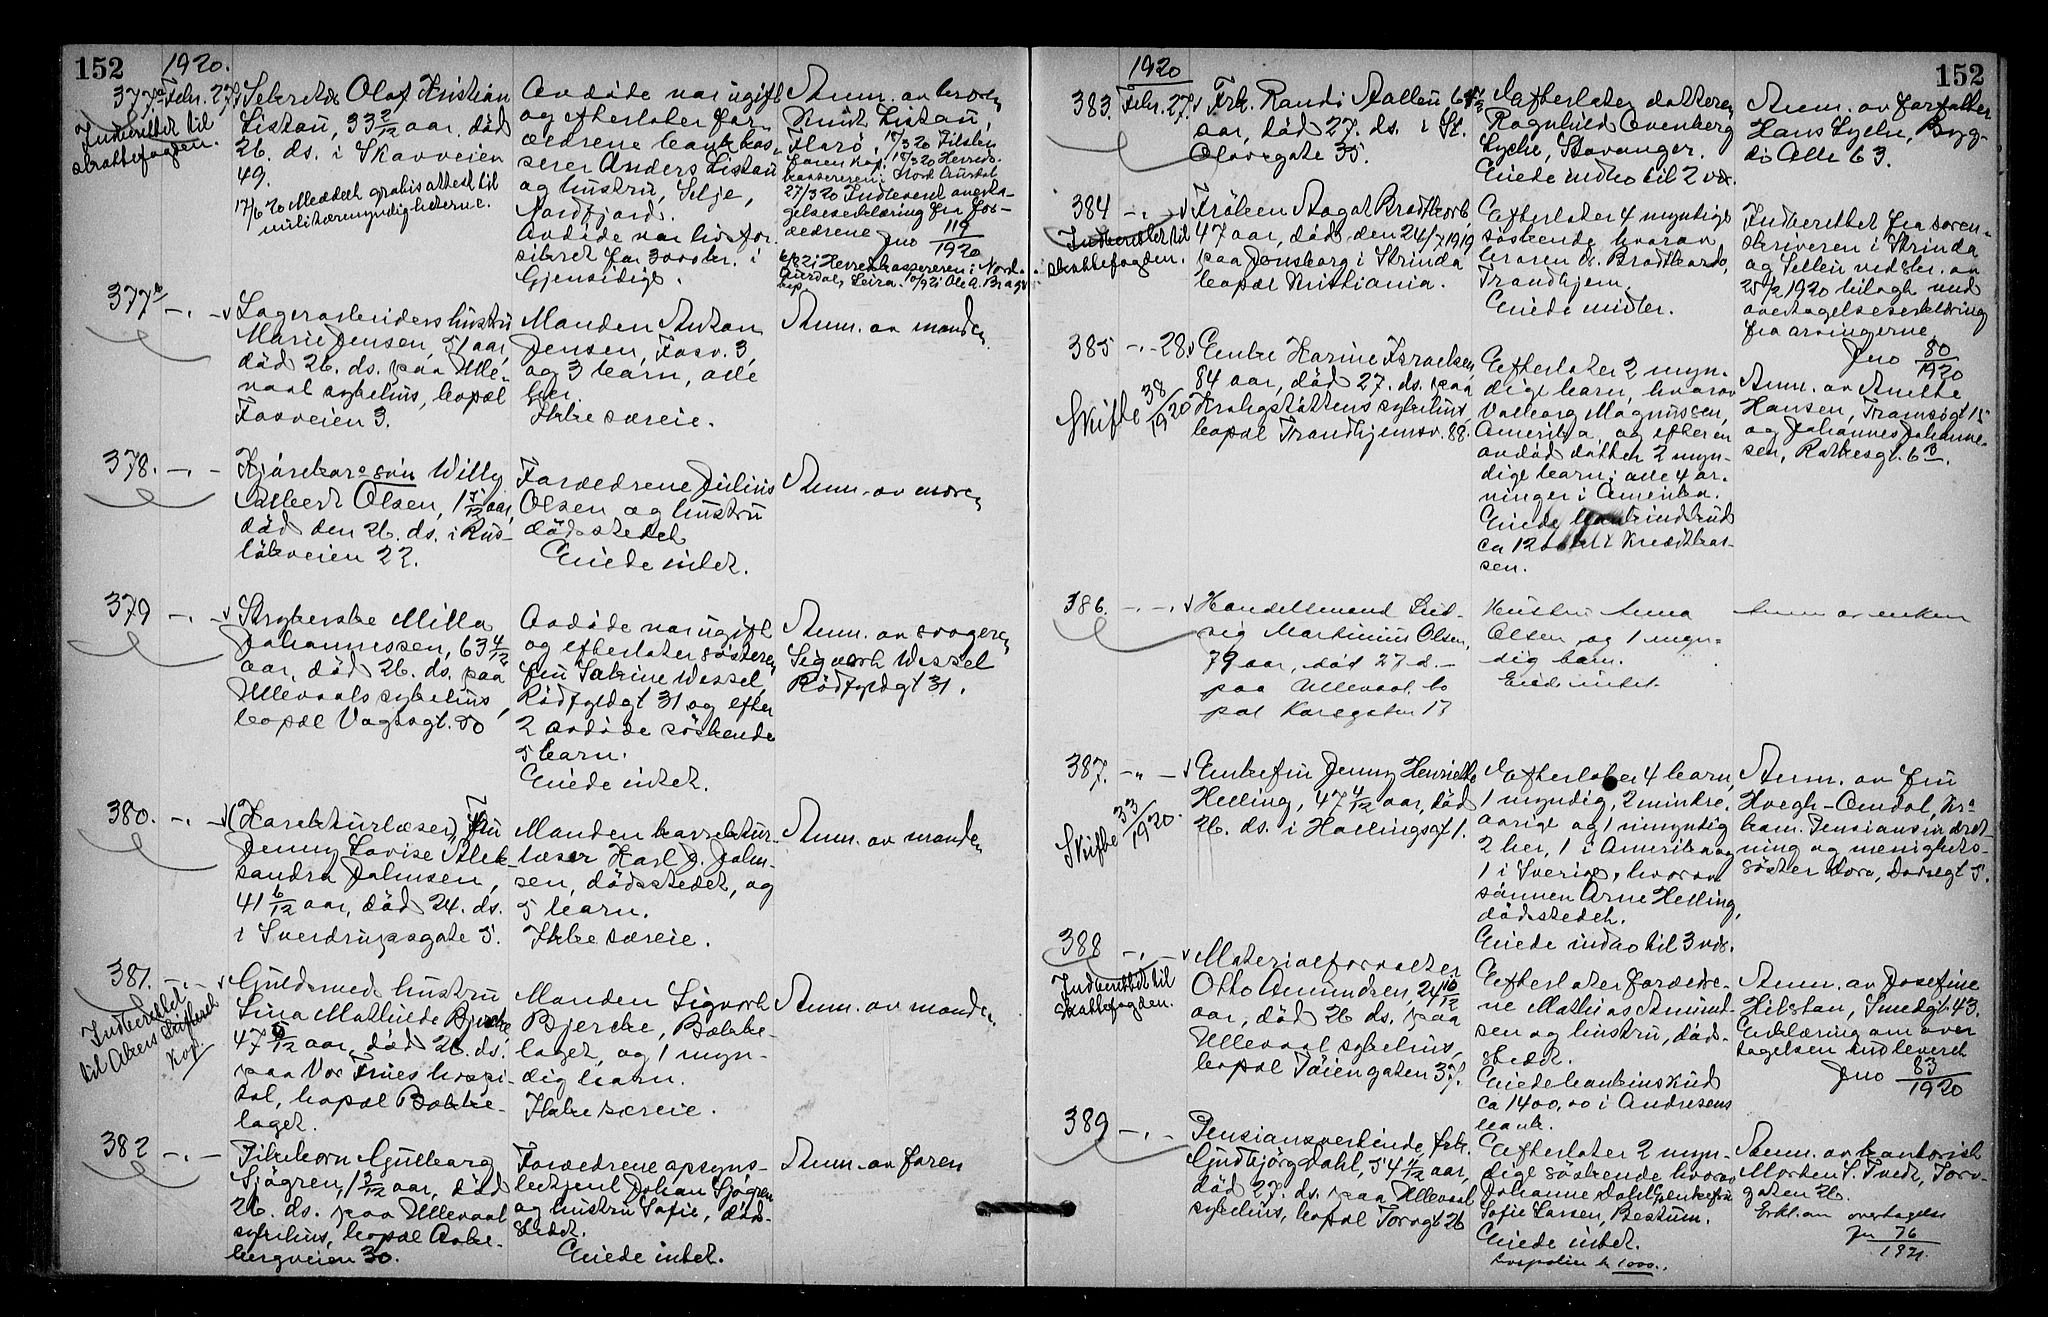 152
1920.
377a Febr. 27.
Indberettet til
skattefogden.
Sekretær Olaf Kristian
Listau, 33 2/12 aar, død
26. ds. i Skovveien
49.
17/6 20 Meddelt gratis attest til
militærmyndigheterne.
Avdøde var ugift
og efterlater for-
ældrene bankkas-
serer Anders Listau
og hustru, Selje,
Nordfjord.
Avdøde var livsfor-
sikret for 3000 kr. i
Gjensidige.
Anm. av broren
Knut Listau,
Florø. 17/3 20 Tilsten
faren kop. 18/3 20 Herreds-
kassereren i Nord Aurdal
27/3 20 Indlevert overta-
gelseserklæring fra for-
ældrene
Jno 119/1920
Herredskassereren i Nord-
Aurdal, Leira.
377b -"-
Lagerarbeiders hustru
Marie Jensen, 51 aar,
død 26. ds. paa Ulle-
vaal sykehus, bopæl
Fossveien 3.
Manden Anton
Jensen, Fossv. 3,
og 3 barn, alle
her.
Ikke særeie.
Anm. av manden
378. -"-
Kjørekars søn Willy
Albert Olsen, 1 5/12 aar,
død den 26. ds. i Rus-
løkveien 22.
Forældrene Julius
Olsen og hustru
dødsstedet
Eiede intet.
Anm. av moren
379 -"-
Strykerske Milla
Johannessen, 63 4/12
aar, død 26. ds. paa
Ullevaals sykehus,
bopæl Vogtsgt. 50
Avdøde var ugift
og efterlater søsteren
fru Sabrine Wessel,
Rødfyldgt 31 og efter
2 avdøde søskende
5 barn.
Eiede intet.
Anm. av svogeren
Sigvart Wessel
Rødfyldgt 31.
380. -"-
(Korrekturlæser), Fru
Jenny Lovise Alek-
sandra Johnsen,
41 6/12 aar, død 24. ds.
i Sverdrupsgate 5.
Manden korrektur-
læser Karl J. John-
sen, dødsstedet, og
5 barn.
Ikke særeie.
Anm. av manden
381. -"-
Indberettet
til Akers skifteret
Kop.
Guldsmed hustru
Lina Mathilde Bjercke
47 9/12 aar, død 26. ds.
paa Vor Frues hospi-
tal, bopæl Bække-
laget.
Manden Sigvart
Bjercke, Bække-
laget, og 1 myn-
dig barn.
Ikke særeie.
Anm. av manden
382 -"-
Pikebarn Gulborg
Sjøgren, 1 3/12 aar, død
26. ds. paa Ullevaal
sykehus, bopæl Aake-
bergveien 30.
Forældrene opsyns-
betjent Johan Sjøgren
og hustru Sofie, døds-
stedet.
Eiede intet.
Anm. av faren
152
1920
383. Febr. 27.
Frk. Randi Aallen 64
aar, død 27. ds. i St.
Olavsgate 35.
Efterlater datteren
Ragnhild Ovenberg
Lyche, Stavanger.
Eiede indbo til 2 vær.
Anm. av forfatter
Hans Lyche, Byg-
dø Alle 63.
384 -"-
Indberettet til
skattefogden.
Frøken Aagot Bradtkorb
47 aar, død den 24/7 1919
paa Jonsborg i Strinda
bopæl Kristiania.
Efterlater 4 myndige
søskende hvorav
broren O. Bradtkorb,
Trondhjem.
Eiede midler.
Indberettet fra soren-
skriveren i Strinda
og Selbu ved skr. av
25/2 1920 bilagt med
overtagelseserklæring
fra arvingerne.
Jno 80/1920
385 -"- 28.
Skifte 38/1920
Enke Karine Israelsen,
84 aar, død 27. ds. paa
Krohgstøttens sykehus
bopæl Trondhjemsv. 88.
Efterlater 2 myn-
dige barn, hvorav
Valborg Magnussen,
Amerika, og efter en
avdød datter 2 myn-
dige barn; alle 4 ar-
vinger i Amerika.
Eiede bankindskud
ca 1200 kr i Kreditkas-
sen.
Anm. av Anette
Hansen, Tromsøgt 15
og Johannes Johanne-
sen, Rathkesgt. 6b.
386. -"-
Handelsmand Lud-
vig Martinius Olsen,
79 aar, død 27 d.-
paa Ullevaal, bo
pæl Korsgaten 17
Hustru Anna
Olsen og 1 myn-
dig barn.
Eiede intet.
Anm av enken
387. -"-
Skifte 33/1920.
Enkefru Jenny Henriette
Helling, 47 4/12 aar, død
26. ds. i Hallingsgt 1.
Efterlater 4 barn,
1 myndig, 2 mindre-
aarige og 1 umyndig
2 her, 1 i Amerika og
1 i Sverige, hvorav
sønnen Arne Helling,
dødsstedet.
Eiede indbo til 3 vær.
Anm. av fru
Hoegh-Omdal, Kr.a
kom. Pensionsindret-
ning og menighets-
søster Dora, Dovregt 5.
388 -"-
Indberettet til
skattefogden.
Materialforvalter
Otto Amundsen, 24 10/12
aar, død 26 ds. paa
Ullevaal sykehus,
bopæl Tøiengaten 37.
Efterlater forældre-
ne Mathias Amund-
sen og hustru, døds-
stedet.
Eiede bankindskud
ca 1400,00 i Andresens
bank.
Anm. av Josefine
Hilstan, Smedgt 43.
Erklæring om over
tagelsen indlevert
Jno 83/1920
389 -"-
Pensionsverkinde, frk.
Gudbjørg Dahl, 54 4/12 aar,
død 27. ds. paa Ullevaal
sykehus, bopæl Torvgt 26
Efterlater 2 myn-
dige søskende hvorav
Johanne Dahl og enkefru
Sofie Larsen, Bestum.
Eiede intet.
Livspolice kr 1000.
Anm. av kontorist
Morten S. Tvedt, Torv-
gaten 26.
Erkl. om overtagelse
Jn 76/1921.